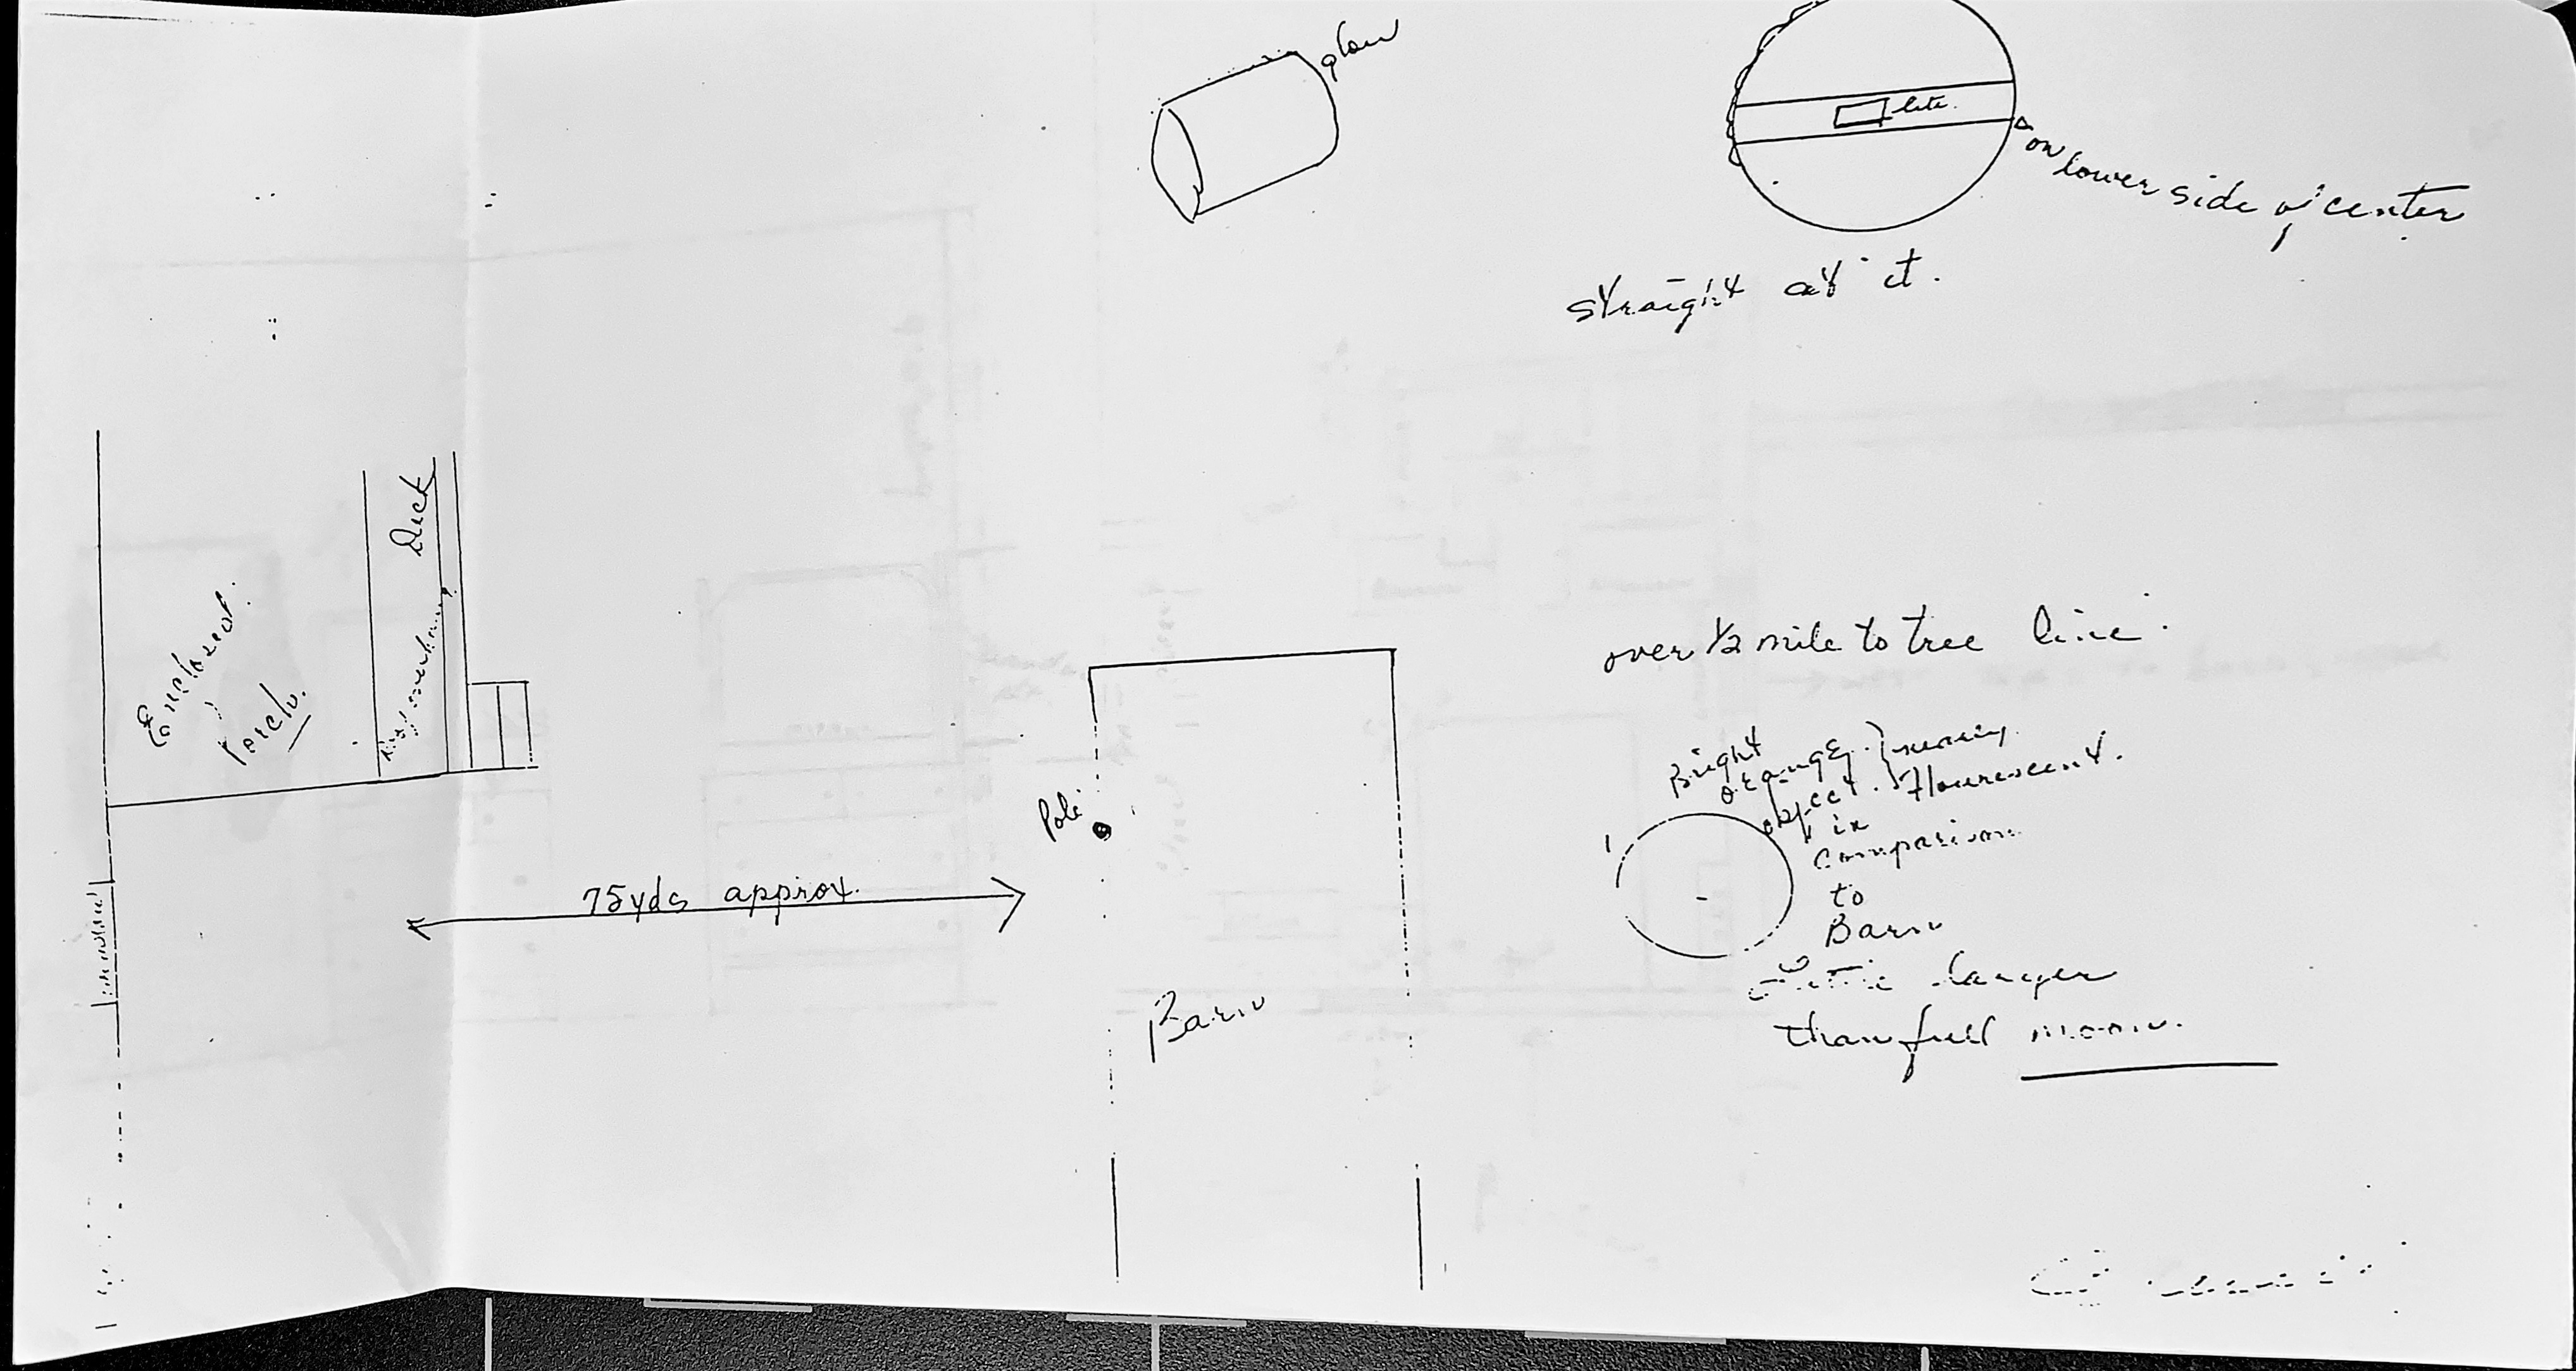 glow
lite.
on lower side of center
straight at it.
Deck
Enclosed
Porch.
over 1/2 mile to tree line.
Bright
orange
object.
Flourescent.
in
Comparison
to
Barn
larger
than full moon.
Pole
75yds approx.
Barn
window